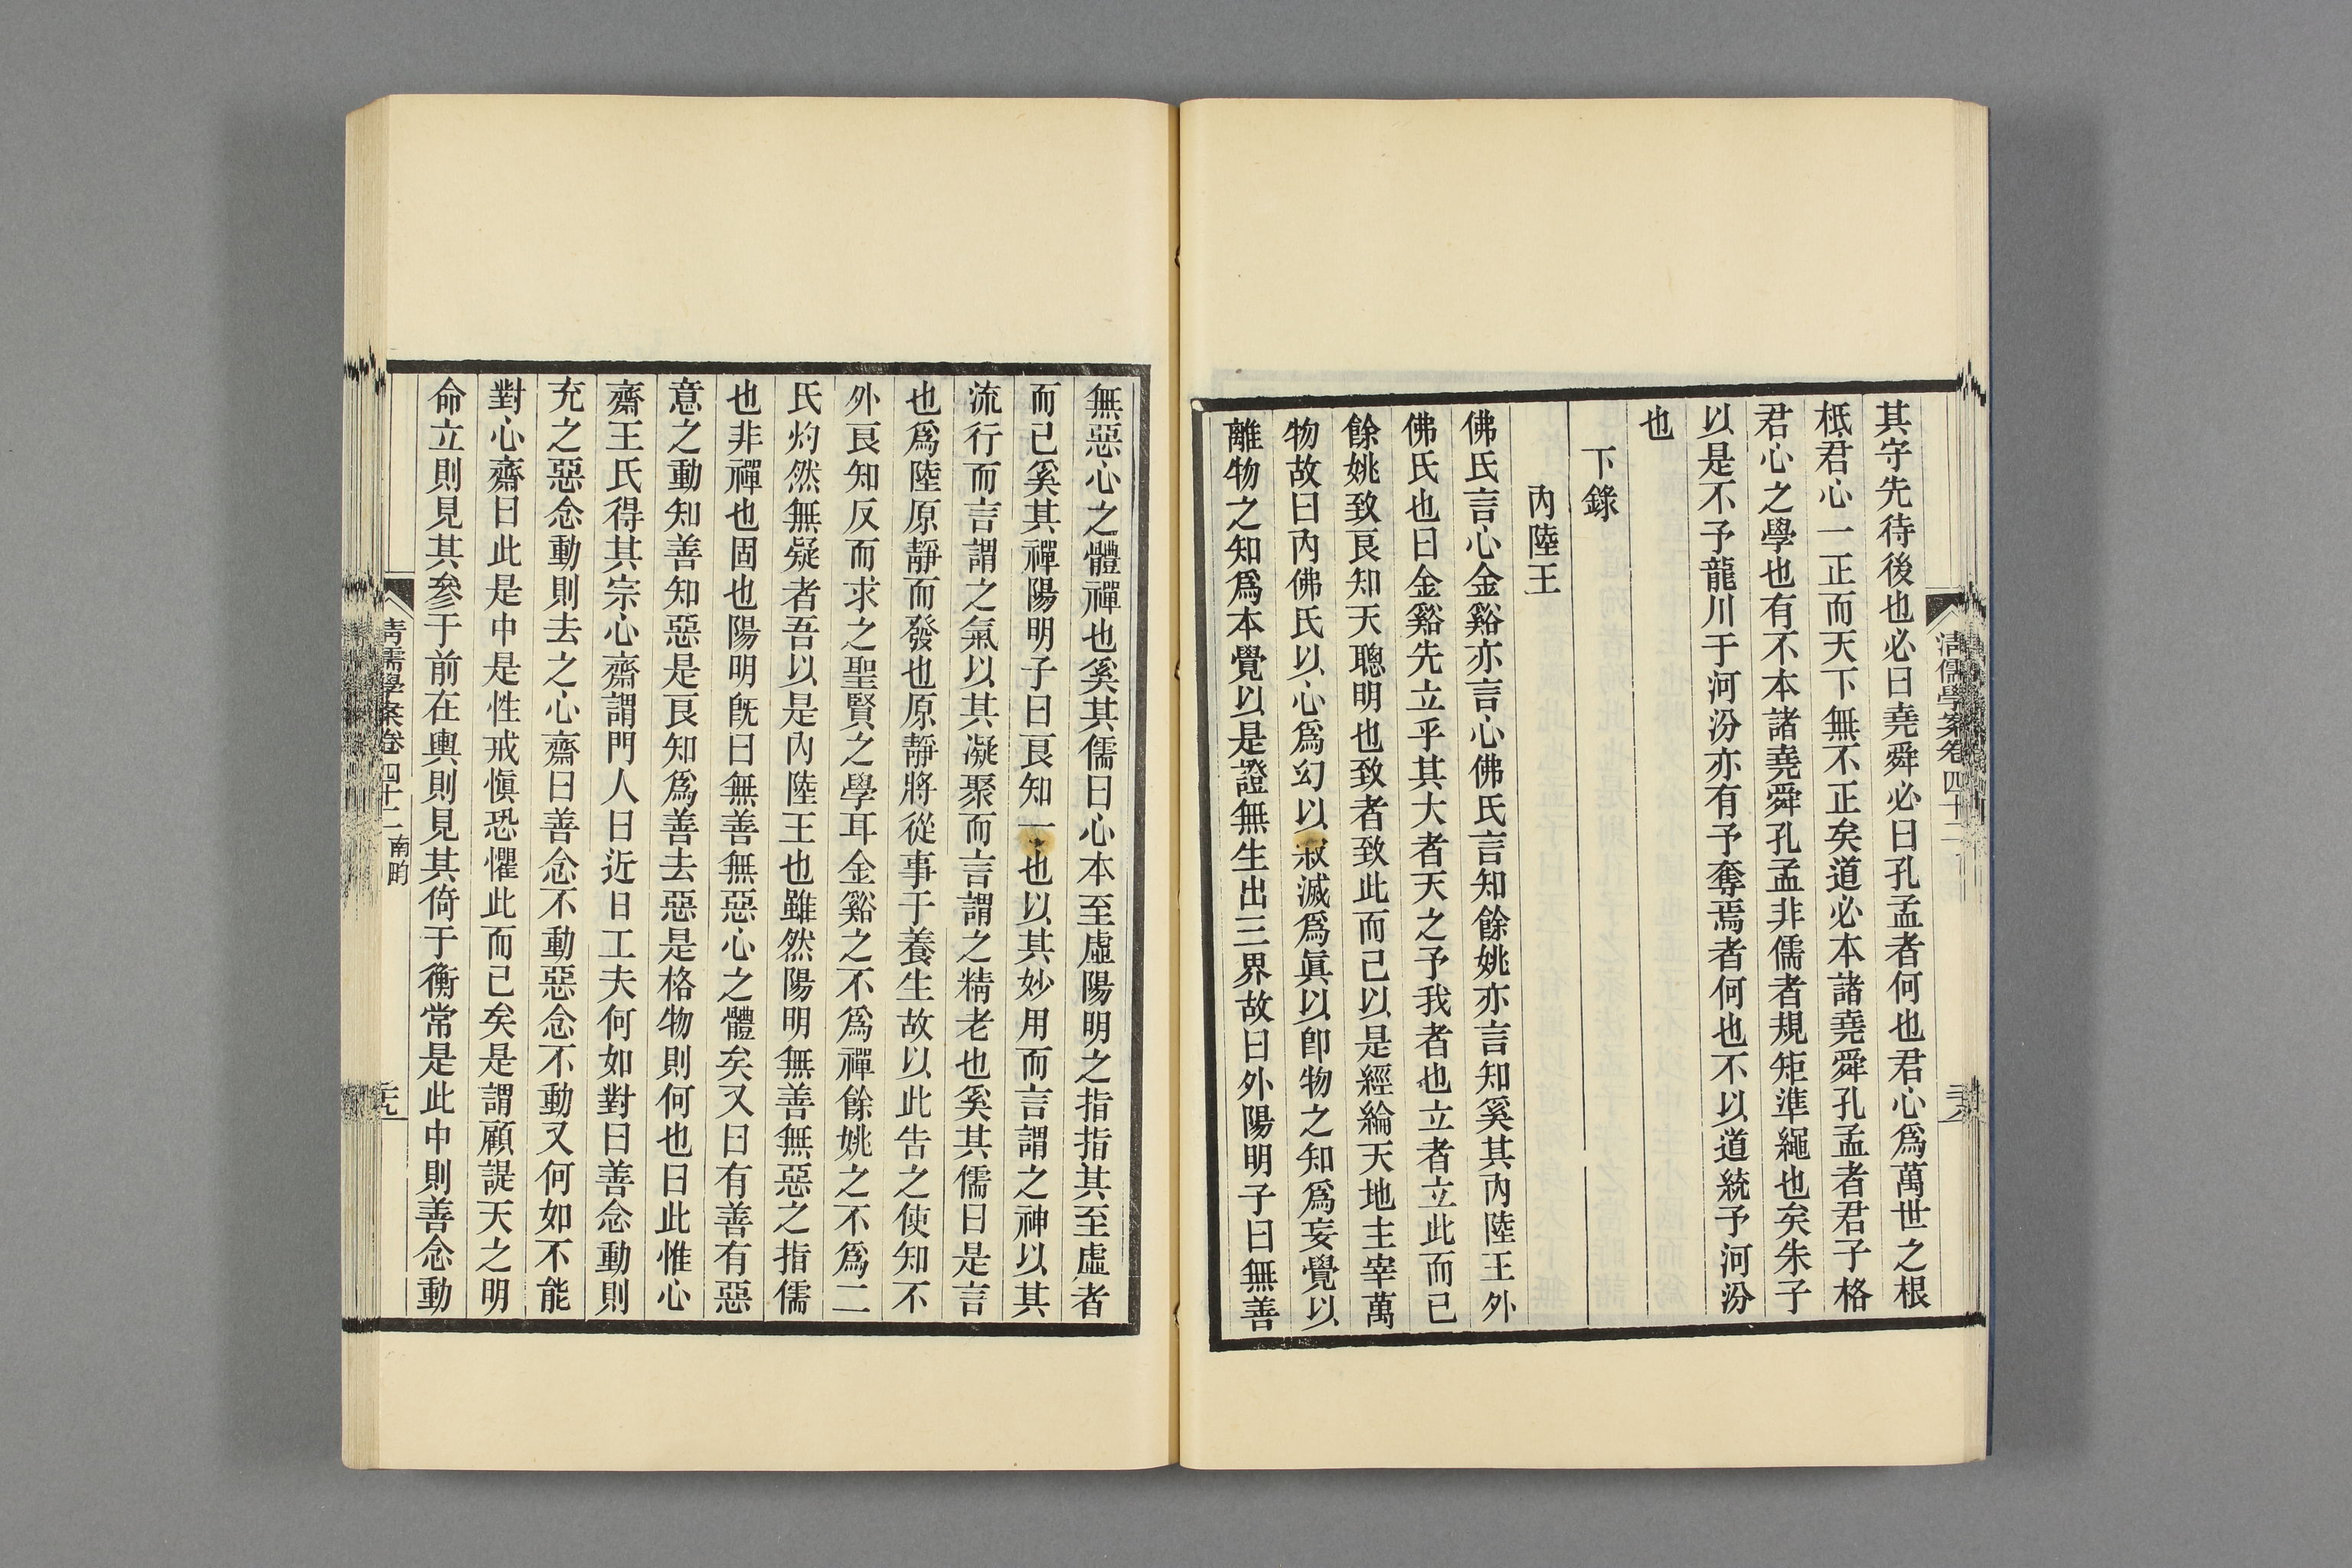 其守先待後也必曰堯舜必曰孔孟者何也君心爲萬世之根
柢君心一正而天下無不正矣道必本諸堯舜孔孟者君子格
君心之學也有不本諸堯舜孔孟非儒者規矩準繩也矣朱子
以是不予龍川于河汾亦有予奪焉者何也不以道統予河汾
也
下錄
內陸王
佛氏言心金谿亦言心佛氏言知餘姚亦言知奚其內陸王外
佛氏也曰金谿先立乎其大者天之予我者也立者立此而已
餘姚致良知天聰明也致者致此而已以是經綸天地主宰萬
物故曰內佛氏以心爲幻以寂滅爲眞以卽物之知爲妄覺以
離物之知爲本覺以是證無生出三界故曰外陽明子曰無善
清儒學案卷四十二
無惡心之體禪也奚其儒曰心本至虛陽明之指指其至虛者
而已奚其禪陽明子曰良知一也以其妙用而言謂之神以其
流行而言謂之氣以其凝聚而言謂之精老也奚其儒曰是言
也爲陸原靜而發也原靜將從事于養生故以此告之使知不
外良知反而求之聖賢之學耳金谿之不爲禪餘姚之不爲二
氏灼然無疑者吾以是內陸王也雖然陽明無善無惡之指儒
也非禪也固也陽明旣曰無善無惡心之體矣又曰有善有惡
意之動知善知惡是良知爲善去惡是格物則何也曰此惟心
齋王氏得其宗心齋謂門人曰近日工夫何如對曰善念動則
充之惡念動則去之心齋曰善念不動惡念不動又何如不能
對心齋曰此是中是性戒愼恐懼此而已矣是謂顧諟天之明
命立則見其參于前在輿則見其倚于衡常是此中則善念動
清儒學案卷四十二 南畇